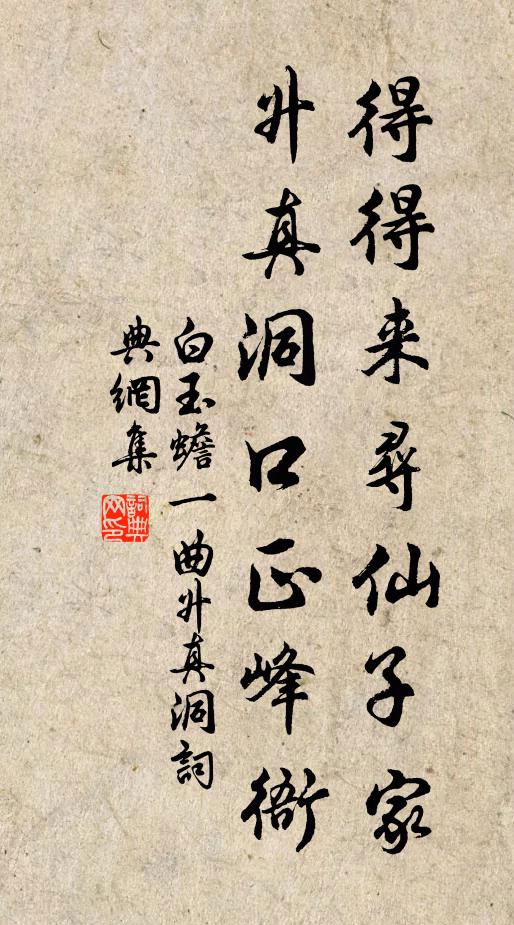 得得来尋仙子家
升真洞口正峰衙
白玉蟾一曲升真洞詞
典網集
詞典
网印